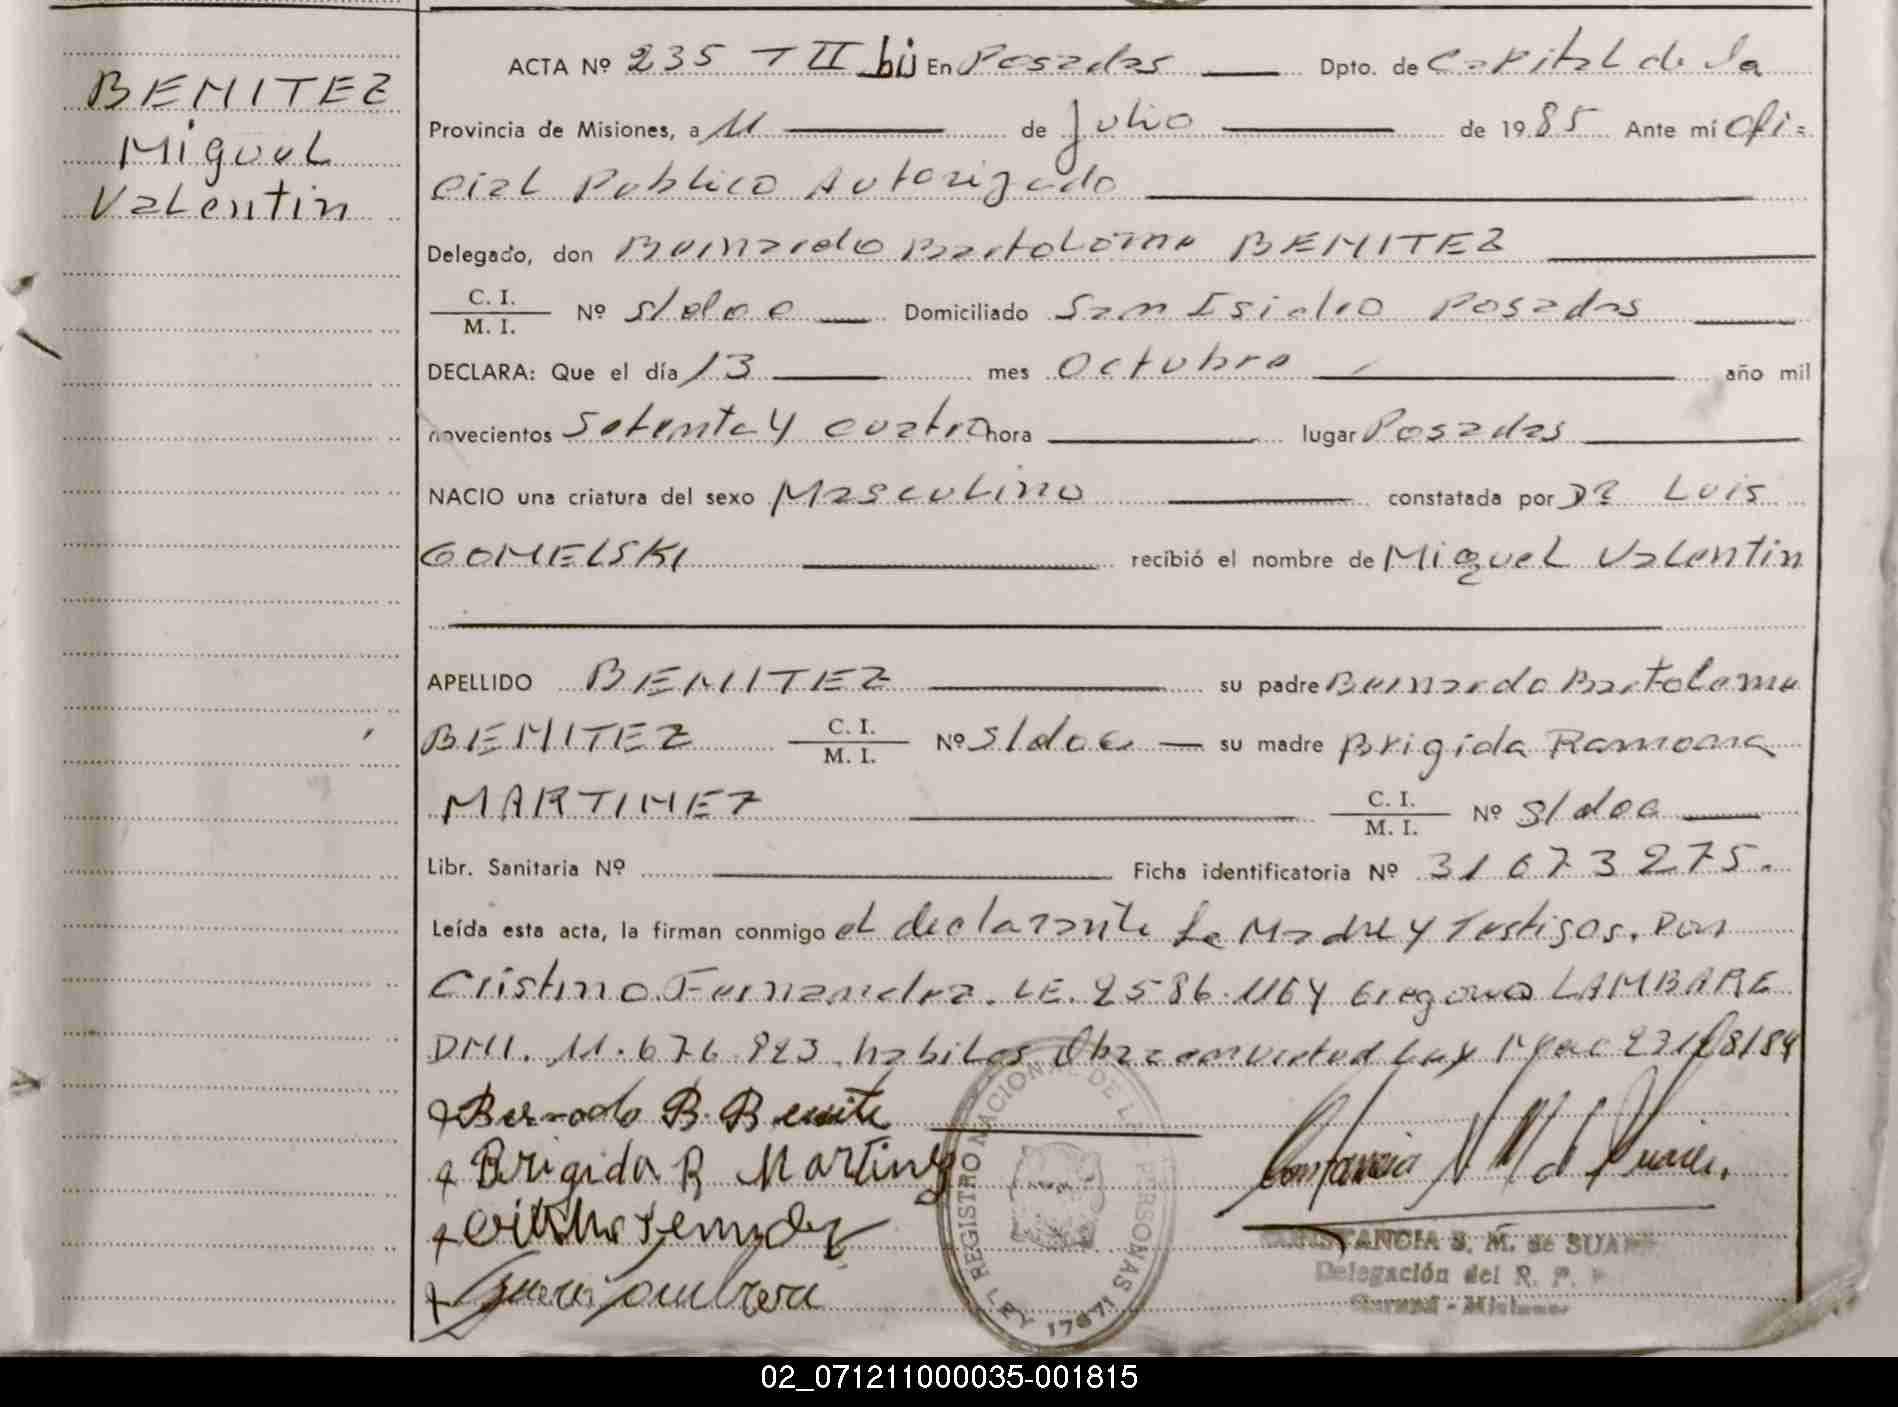 BENITEZ
Miguel
Valentin
ACTA Nº 235 T II bis En Posadas Dpto. de Capital de la
Provincia de Misiones, a 11 de Julio de 1985 Ante mí Ofi-
cial Publico Autorizado
Delegado, don Bernardo Bartolome BENITEZ
C. I.
M. I. Nº s/doc Domiciliado San Isidro Posadas
DECLARA: Que el día 13 mes Octubre año mil
novecientos Setenta y cuatro hora lugar Posadas
NACIO una criatura del sexo Masculino constatada por Dr Luis
GOMELSKI recibió el nombre de Miguel Valentin
APELLIDO BENITEZ su padre Bernardo Bartolome
BENITEZ C. I. M. I. Nº s/doc su madre Brigida Ramona
MARTINEZ C. I. M. I. Nº s/doc
Libr. Sanitaria Nº Ficha identificatoria Nº 31 673 275.
Leída esta acta, la firman conmigo el declarante la Madre y Testigos. Don
Cristino Fernandez. LE. 2586 116 y Gregorio LAMBARE
DNI. 11.676.923. habiles Obra en virtud Ley
Bernardo B. Benite
Brigida R Martinez
REGISTRO NACIONAL DE LAS PERSONAS
LEY 17671
CONSTANCIA S. M. de SUAREZ
Delegación del R. P.
Garupá - Misiones
02_071211000035-001815